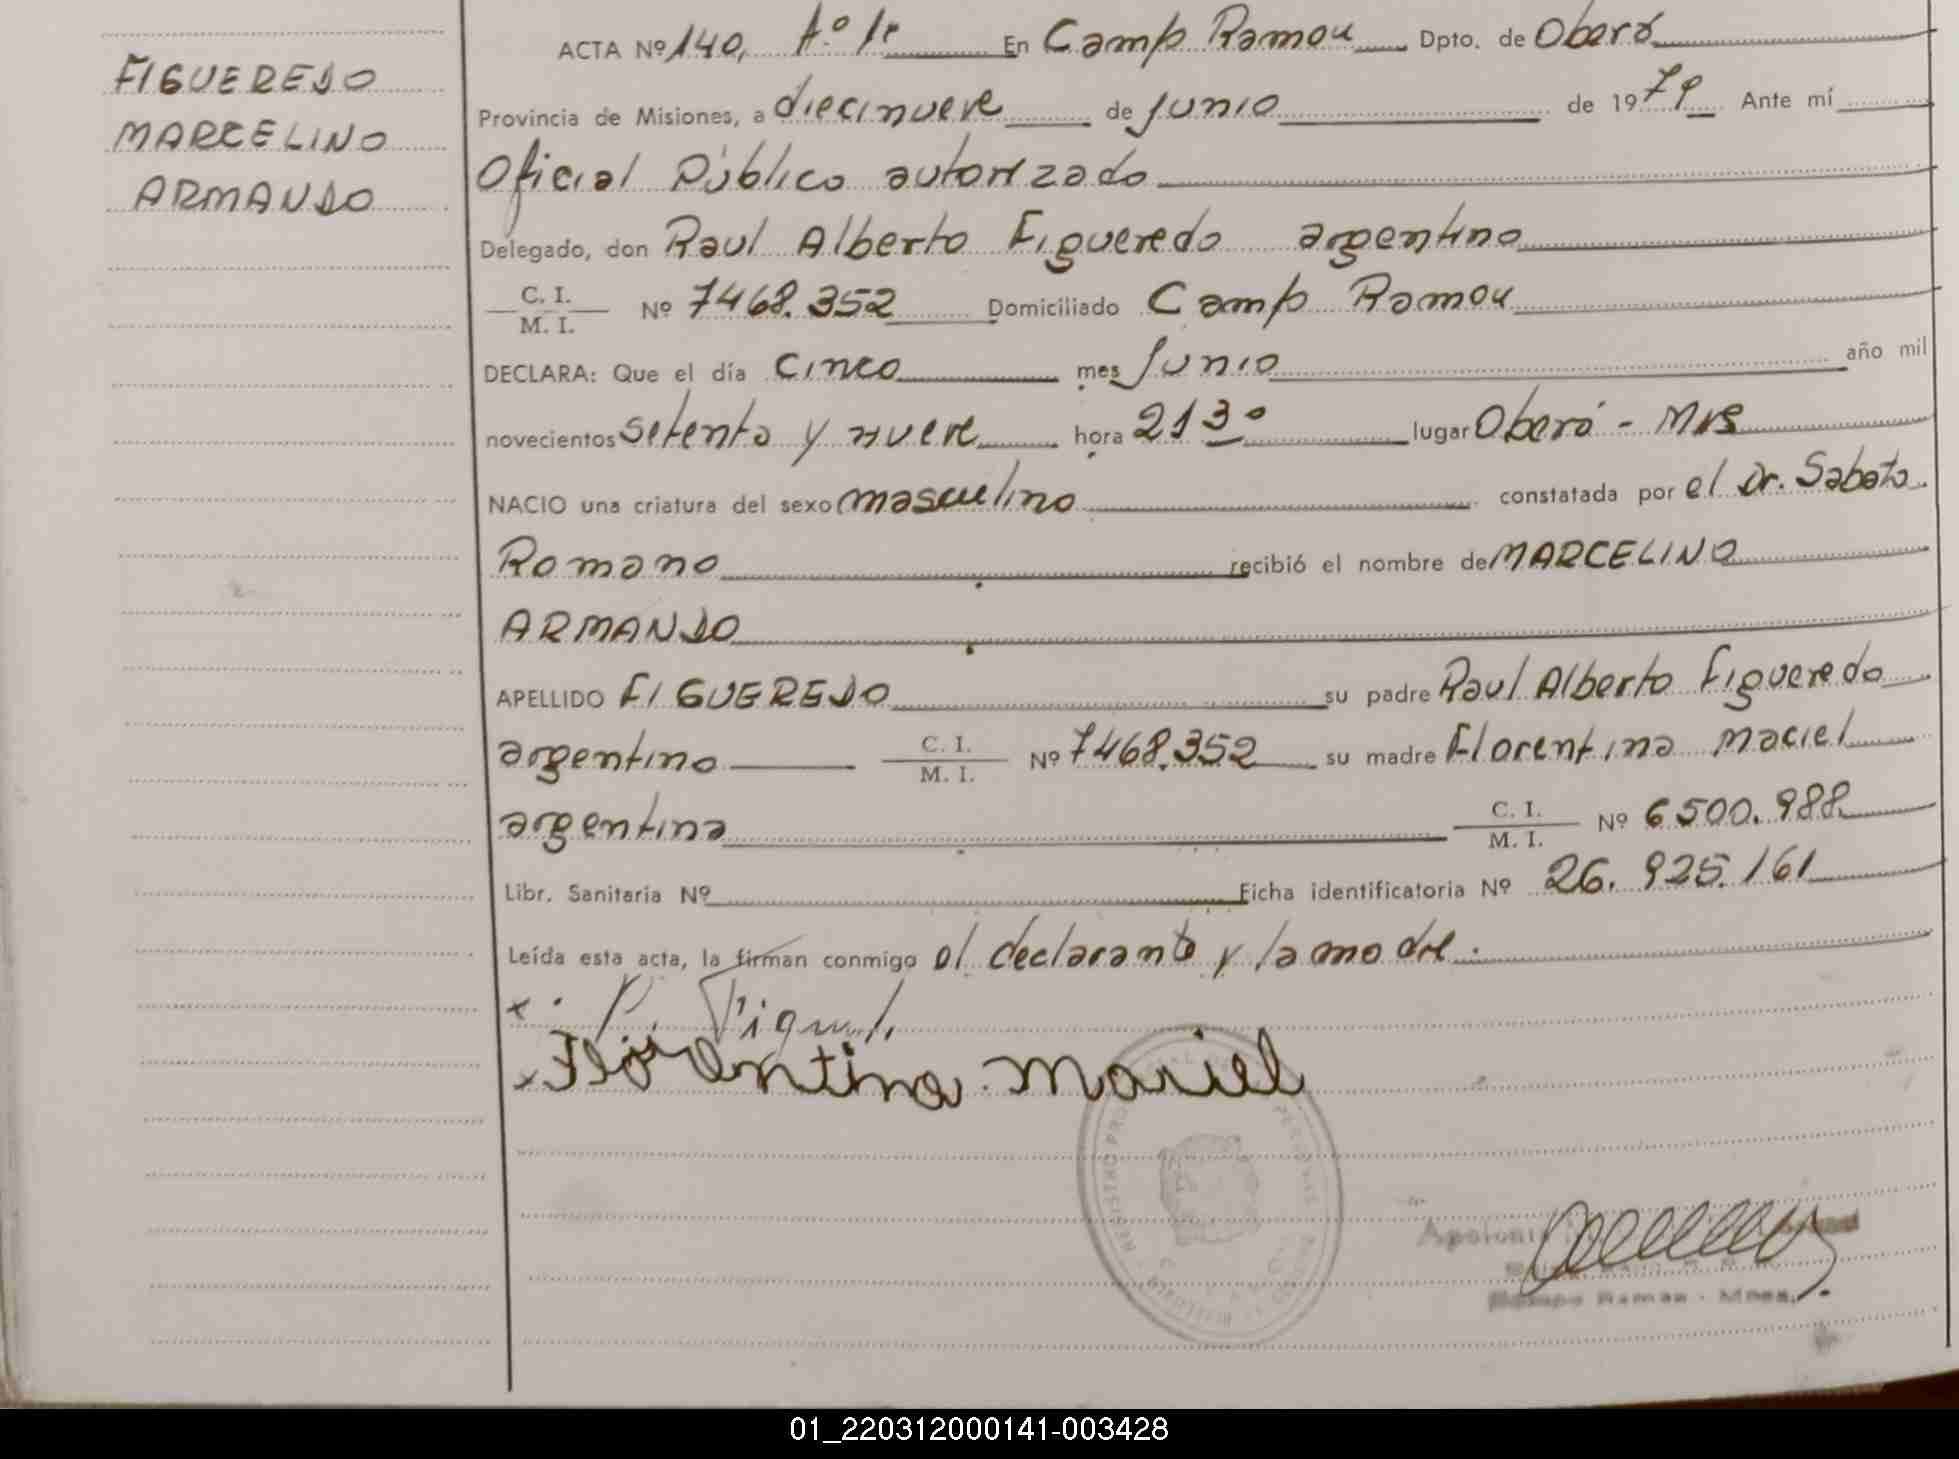 FIGUEREDO
MARCELINO
ARMANDO
ACTA Nº 140, Aº 1º En Camp Ramou Dpto. de Oberá
Provincia de Misiones, a diecinueve de Junio de 1979 Ante mí
Oficial Público autorizado
Delegado, don Raul Alberto Figueredo argentino
C. I.
M. I. Nº 7468.352 Domiciliado Camp Ramou
DECLARA: Que el día cinco mes Junio año mil
novecientos setenta y nueve hora 21 30 lugar Oberá - Mns
NACIO una criatura del sexo masculino constatada por el Dr. Sabato
Romano recibió el nombre de MARCELINO
ARMANDO
APELLIDO FIGUEREDO su padre Raul Alberto Figueredo
argentino C. I.
M. I. Nº 7468.352 su madre Florentina Maciel
argentina C. I.
M. I. Nº 6500.988
Libr. Sanitaria Nº Ficha identificatoria Nº 26.925.161
Leída esta acta, la firman conmigo el declarante y la madre.
Florentina Maciel